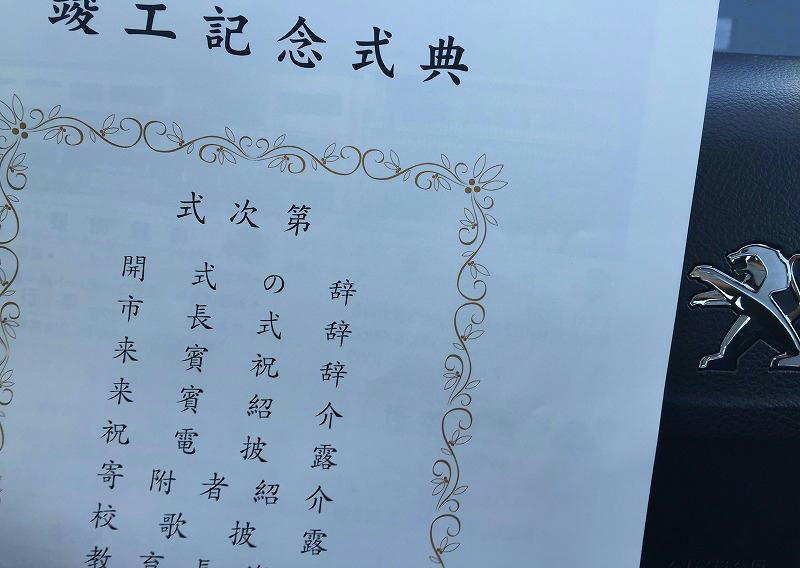 竣工記念式典
式次第
開式の辞
市長式辞
来賓祝辞
来賓紹介
祝電披露
寄附者紹介
校歌披露
教育長